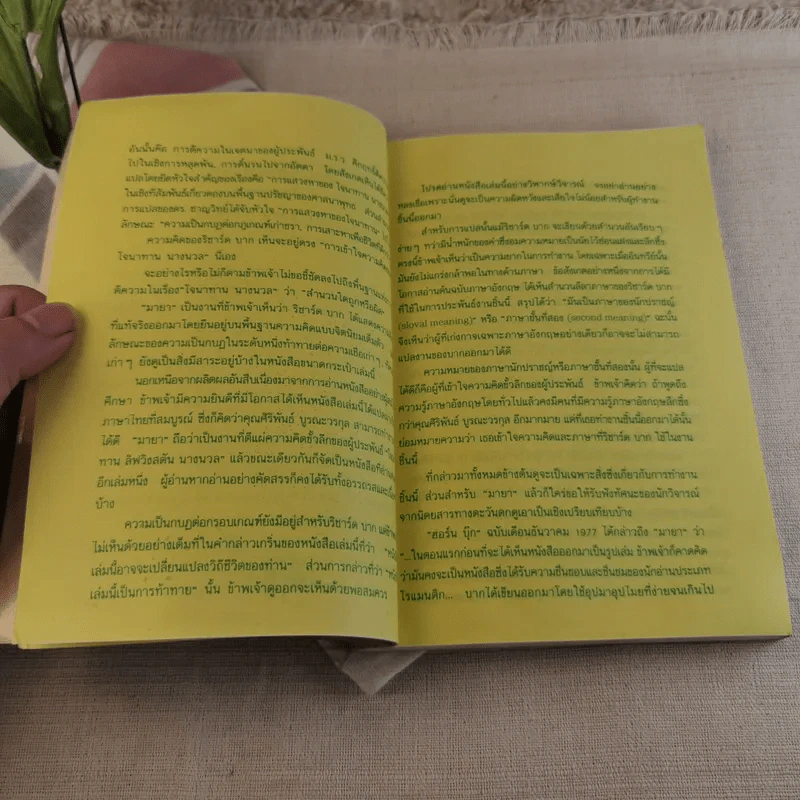 อันนั้นคือ การตีความในเจตนาของผู้ประพันธ์ ม.ร.ว.
ไปในเชิงการหลุดพ้น, การดั้นรนไปจากอัตตา โดยสังเกตเห็นได้
แปลโดยยึดหัวใจสำคัญของเรื่องคือ "การแสวงหาของ โจนาทาน
ในเชิงที่สัมพันธ์เกี่ยวดองบนพื้นฐานปรัชญาของศาสนาพุทธ ส่วน
การแปลของดร. ชาญวิทย์ได้จับหัวใจ "การแสวงหาของโจนาทาน"
ลักษณะ "ความเป็นกบฏต่อกฎเกณฑ์เก่าชรา, การเสาะหาเพื่อชีวิตที่
ความคิดของริชาร์ด บาก เห็นจะอยู่ตรง "การเข้าถึงความคิด
โจนาทาน นางนวล" นี้เอง
จะอย่างไรหรือไม่ก็ตามข้าพเจ้าไม่ขอชี้ชัดลงไปถึงพื้นฐาน
ตีความในเรื่อง"โจนาทาน นางนวล" ว่า "สำนวนใดถูกหรือผิด"
"มายา" เป็นงานที่ข้าพเจ้าเห็นว่า ริชาร์ด บาก ได้แสดง
ที่แท้จริงออกมาโดยยืนอยู่บนพื้นฐานความคิดแบบจิตนิยมเต็มตัว
ลักษณะของความเป็นกบฏในระดับหนึ่งท้าทายต่อความเชื่อเก่า ๆ
เก่า ๆ ยังดูเป็นสิ่งมีสาระอยู่บ้างในหนังสือขนาดกระเป๋าเล่มนี้
นอกเหนือจากผลิตผลอันสืบเนื่องมาจากการอ่านหนังสืออย่าง
ศึกษา ข้าพเจ้ามีความยินดีที่มีโอกาสได้เห็นหนังสือเล่มนี้ได้แปล
ภาษาไทยที่สมบูรณ์ ซึ่งก็คิดว่าคุณศิริพันธ์ บูรณะวรกุล สามารถทำ
ได้ดี "มายา" ถือว่าเป็นงานที่ตีแผ่ความคิดขั้วลึกของผู้ประพันธ์
ทาน ลิฟวิงสตัน นางนวล" แล้วขณะเดียวกันก็จัดเป็นหนังสือที่
อีกเล่มหนึ่ง ผู้อ่านหากอ่านอย่างคัดสรรก็คงได้รับทั้งอรรถรสและ
บ้าง
ความเป็นกบฏต่อกรอบเกณฑ์ยังมีอยู่สำหรับริชาร์ด บาก แต่
ไม่เห็นด้วยอย่างเต็มที่ในคำกล่าวเกริ่นของหนังสือเล่มนี้ที่ว่า
เล่มนี้อาจจะเปลี่ยนแปลงวิถีชีวิตของท่าน" ส่วนการกล่าวที่ว่า
เล่มนี้เป็นการท้าทาย" นั้น ข้าพเจ้าดูออกจะเห็นด้วยพอสมควร
โปรดอ่านหนังสือเล่มนี้อย่างวิพากษ์วิจารณ์ จงอย่าอ่านอย่าง
หลงเชื่อเพราะนั่นดูจะเป็นความผิดหวังและเสียใจไม่น้อยสำหรับผู้ทำงาน
ชิ้นนี้ออกมา
สำหรับการแปลนั้นแม้ริชาร์ด บาก จะเขียนด้วยสำนวนอันเรียบ ๆ
ง่าย ๆ ทว่ามีน้ำหนักของคำซึ่งอมความหมายเป็นนัยไว้ซ่อนแสดงและลึกซึ้ง
ตรงนี้ข้าพเจ้าเห็นว่าเป็นความยากในการทำงาน โดยเฉพาะเมื่ออินทรีย์นั้น
มันยังไม่แกร่งกล้าพอในทางด้านภาษา ข้อสังเกตอย่างหนึ่งจากการได้มี
โอกาสอ่านต้นฉบับภาษาอังกฤษ ได้เห็นสำนวนลีลาภาษาของริชาร์ด บาก
ที่ใช้ในการประพันธ์งานชิ้นนี้ สรุปได้ว่า "มันเป็นภาษาของนักปราชญ์
(sloval meaning)" หรือ "ภาษาชั้นที่สอง (second meaning)" ฉะนั้น
จึงเห็นว่าผู้ที่เก่งกาจเฉพาะภาษาอังกฤษอย่างเดียวก็อาจจะไม่สามารถ
แปลงานของบากออกมาได้ดี
ความหมายของภาษานักปราชญ์หรือภาษาชั้นที่สองนั้น ผู้ที่จะแปล
ได้ดีก็คือผู้ที่เข้าใจความคิดขั้วลึกของผู้ประพันธ์ ข้าพเจ้าคิดว่า ถ้าพูดถึง
ความรู้ภาษาอังกฤษโดยทั่วไปแล้วคงมีคนที่มีความรู้ภาษาอังกฤษลึกซึ้ง
กว่าคุณศิริพันธ์ บูรณะวรกุล อีกมากมาย แต่ที่เธอทำงานชิ้นนี้ออกมาได้นั้น
ย่อมหมายความว่า เธอเข้าใจความคิดและภาษาที่ริชาร์ด บาก ใช้ในงาน
ชิ้นนี้
ที่กล่าวมาทั้งหมดข้างต้นดูจะเป็นเฉพาะสิ่งซึ่งเกี่ยวกับการทำงาน
ชิ้นนี้ ส่วนสำหรับ "มายา" แล้วก็ใคร่ขอให้รับฟังทัศนะของนักวิจารณ์
จากนิตยสารทางตะวันตกดูเอาเป็นเชิงเปรียบเทียบบ้าง
"ฮอร์น บุ๊ก" ฉบับเดือนธันวาคม 1977 ได้กล่าวถึง "มายา" ว่า
"...ในตอนแรกก่อนที่จะได้เห็นหนังสือออกมาเป็นรูปเล่ม ข้าพเจ้าก็คาดคิด
ว่ามันคงจะเป็นหนังสือซึ่งได้รับความชื่นชอบและชื่นชมของนักอ่านประเภท
โรแมนติก... บากได้เขียนออกมาโดยใช้อุปมาอุปไมยที่ง่ายจนเกินไป